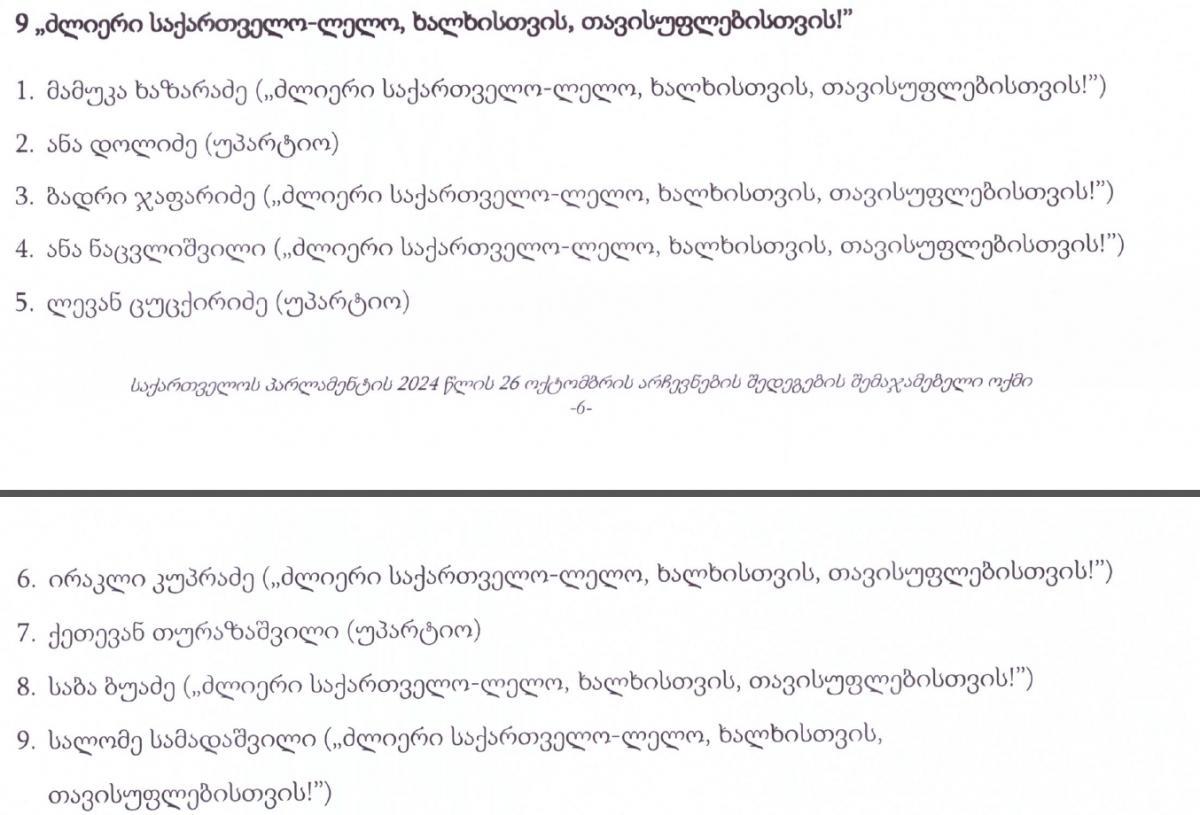 9 „ძლიერი საქართველო-ლელო, ხალხისთვის, თავისუფლებისთვის!”
1. მამუკა ხაზარაძე („ძლიერი საქართველო-ლელო, ხალხისთვის, თავისუფლებისთვის!”)
2. ანა დოლიძე (უპარტიო)
3. ბადრი ჯაფარიძე („ძლიერი საქართველო-ლელო, ხალხისთვის, თავისუფლებისთვის!”)
4. ანა ნაცვლიშვილი („ძლიერი საქართველო-ლელო, ხალხისთვის, თავისუფლებისთვის!”)
5. ლევან ცუცქირიძე (უპარტიო)
საქართველოს პარლამენტის 2024 წლის 26 ოქტომბრის არჩევნების შედეგების შემაჯამებელი ოქმი
-6-
6. ირაკლი კუპრაძე („ძლიერი საქართველო-ლელო, ხალხისთვის, თავისუფლებისთვის!”)
7. ქეთევან თურაზაშვილი (უპარტიო)
8. საბა ბუაძე („ძლიერი საქართველო-ლელო, ხალხისთვის, თავისუფლებისთვის!”)
9. სალომე სამადაშვილი („ძლიერი საქართველო-ლელო, ხალხისთვის,
თავისუფლებისთვის!”)